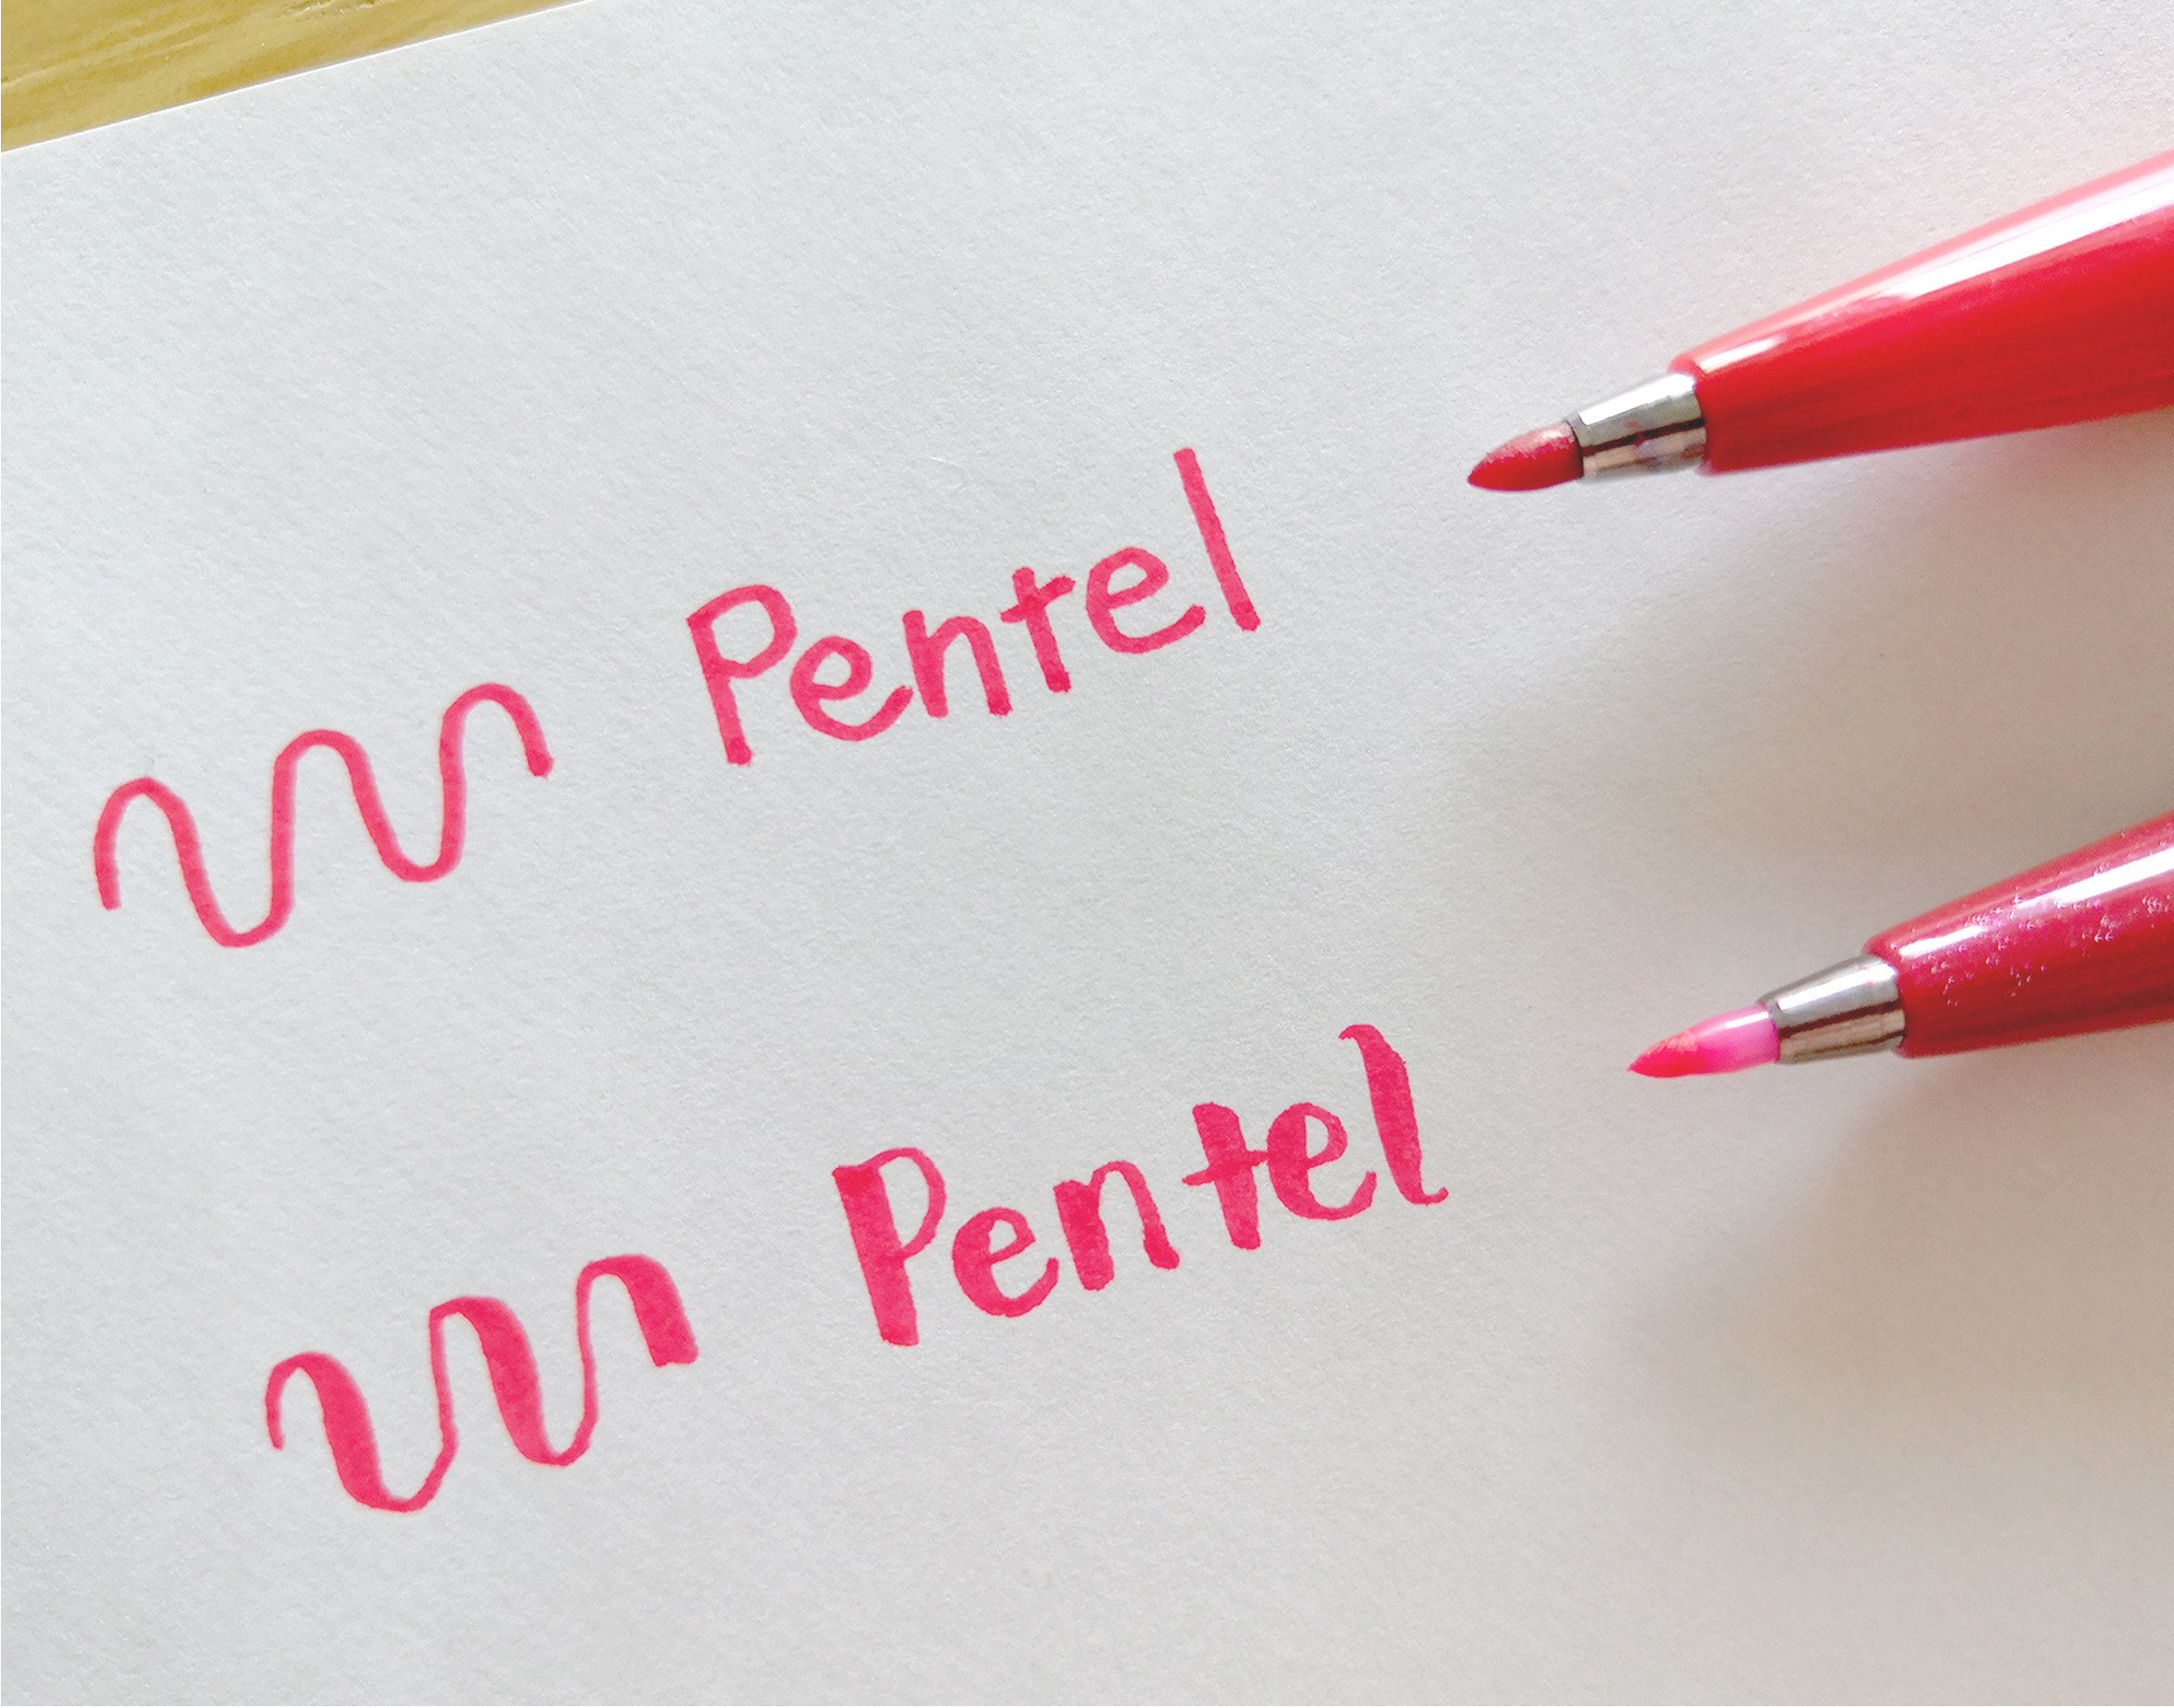 Pentel
Pentel